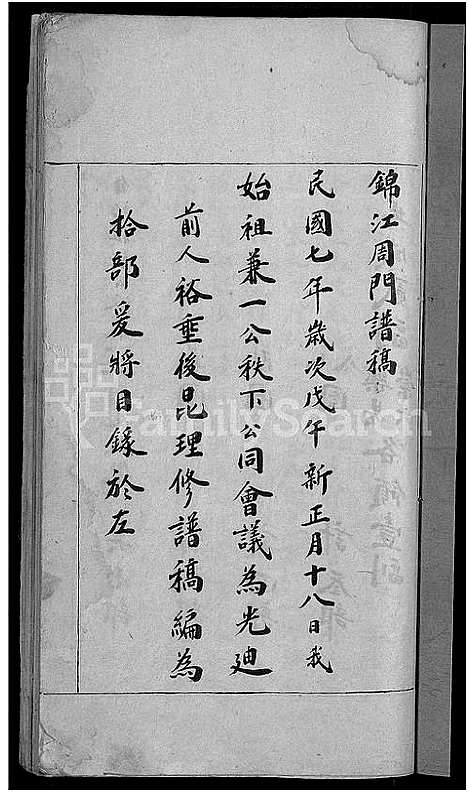 錦江周門譜稿
民國七年歲次戊午新正月十八日我
始祖兼一公秩下公同會議為光迪
前人裕垂後昆理修譜稿編為
拾部爰將目錄於左
FamilySearch